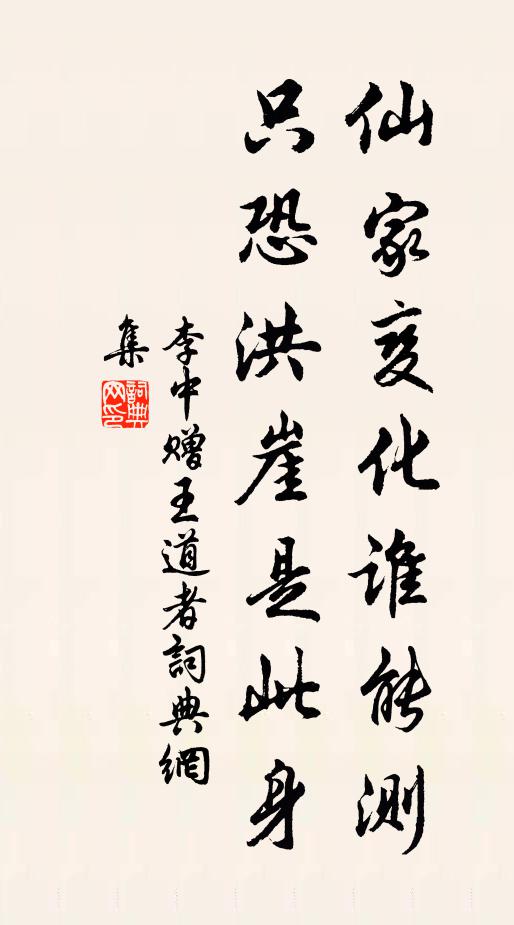 仙家变化谁能测
只恐洪崖是此身
李中赠王道者詞典網
集
詞典
网印